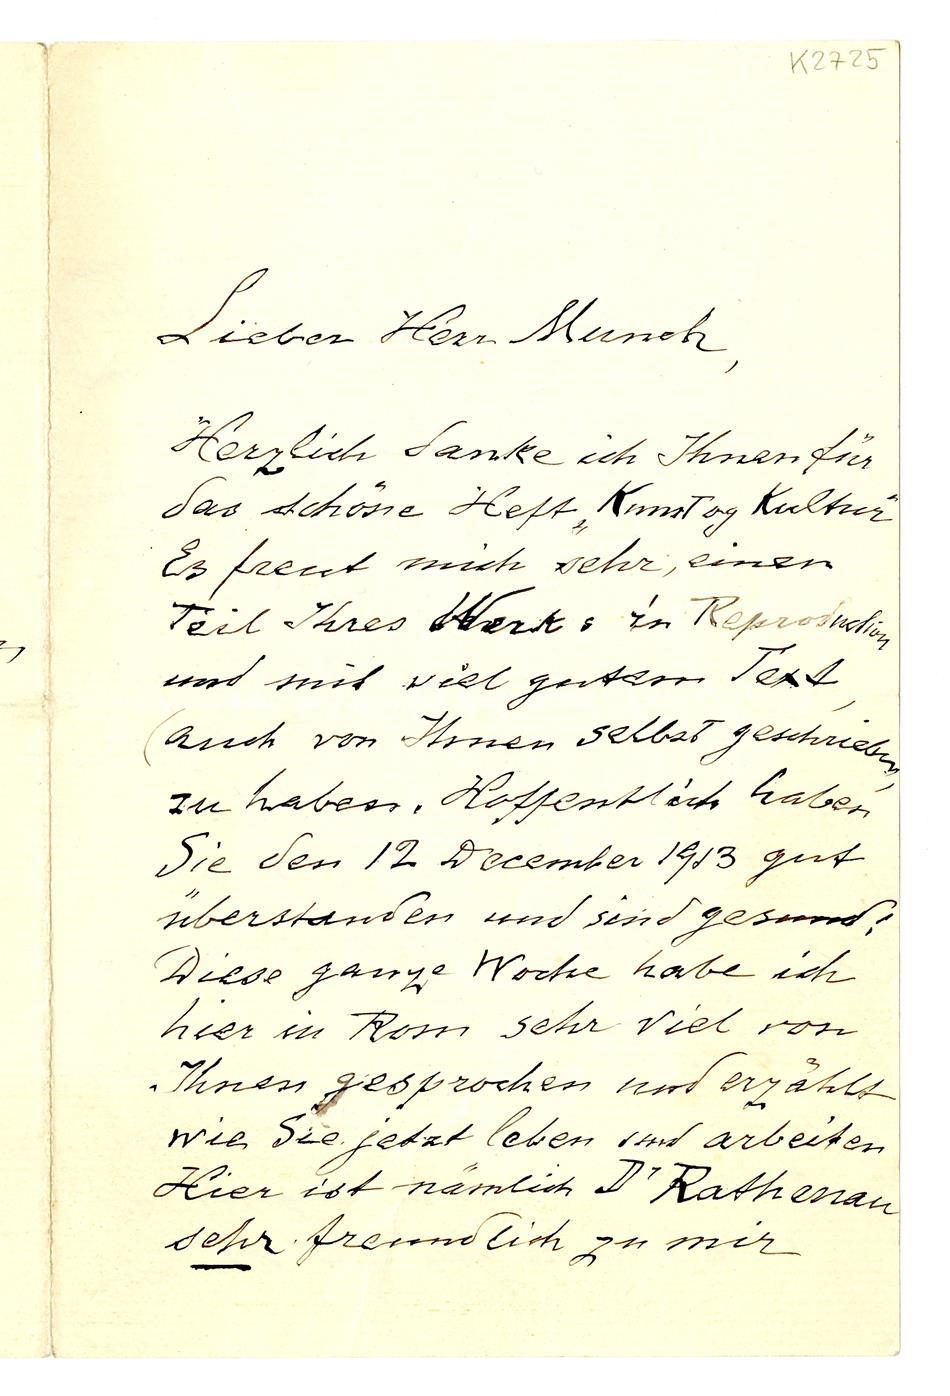 K2725
Lieber Herr Munch,
Herzlich danke ich Ihnen für
das schöne Heft „Kunst og Kultur“
Es freut mich sehr, einen
Teil Ihres Werks in Reproduction
und mit viel gutem Text,
(auch von Ihnen selbst geschrieben,
zu haben. Hoffentlich haben
Sie den 12 December 1913 gut
überstanden und sind gesund!
Diese ganze Woche habe ich
hier in Rom sehr viel von
Ihnen gesprochen und erzählt
wie Sie jetzt leben und arbeiten
Hier ist nämlich Dr Rathenau
sehr freundlich zu mir